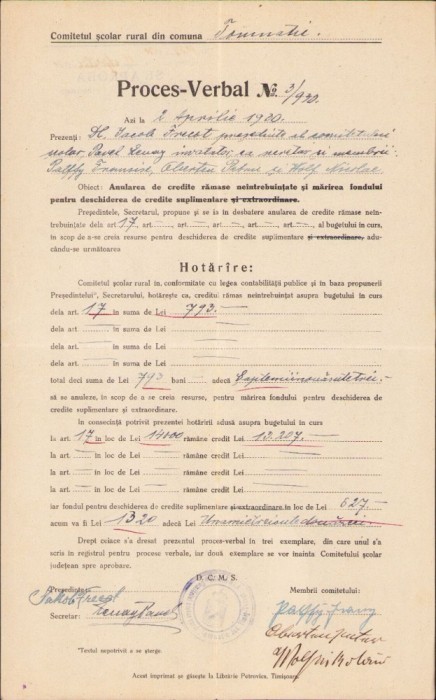 Comitetul școlar rural din comuna Tomnatic.
Proces-Verbal No. 3/930.
Azi la 2 Aprilie 1930.
Prezenți: Dl. Iacob Frecot președinte al comitetului
școlar, Pavel învățător, ca secretar și membrii:
Palffy Francisc, Petru și Wolf Nicolae.
Obiect: Anularea de credite rămase neîntrebuințate și mărirea fondului
pentru deschiderea de credite suplimentare și extraordinare.
Președintele, Secretarul, propune și se is in desbatere anularea de credite rămase nein-
trebuințate dela art 17 art. art. art. art. al bugetului in curs,
in scop de a-se creia resurse pentru deschiderea de credite suplimentare și extraordinare, adu-
cându-se următoarea
Hotărîre:
Comitetul școlar rural in, conformitate cu legea contabilității publice și in baza propunerii
Președintelui*, Secretarului, hotărește ca, creditul rămas neintrebuințat asupra bugetului in curs
dela art. 17 in suma de Lei 793.—
dela art. in suma de Lei
dela art. in suma de Lei
dela art. in suma de Lei
total deci suma de Lei 793 bani — adecă
să se anuleze, in scop de a se creia resurse, pentru mărirea fondului pentru deschiderea de
credite suplimentare și extraordinare.
In consecință potrivit prezentei hotăriri aduse asupra bugetului in curs
la art. 17 in loc de Lei 14000 rămâne credit Lei 13.207.—
la art. in loc de Lei rămâne credit Lei
la art. in loc de Lei rămâne credit Lei
iar fondul pentru deschiderea de credite suplimentare și extraordinare in loc de Lei 527.—
acum va fi Lei 1320 adecă Lei
Drept cciace s'a dresat prezentul proces-verbal in trei exemplare, din care unul s'a
scris in registrul pentru procese verbale, iar două exemplare se vor inainta Comitetului școlar
județean spre aprobare.
D. C. M. S.
Președintele: Membrii comitetului:
Jakob Frecot Palffy
Secretar: Pavel
Wolf Nikolaus
*Textul nepotrivit a se șterge.
Acest imprimat se găsește la Librăria Petrovics, Timișoara.